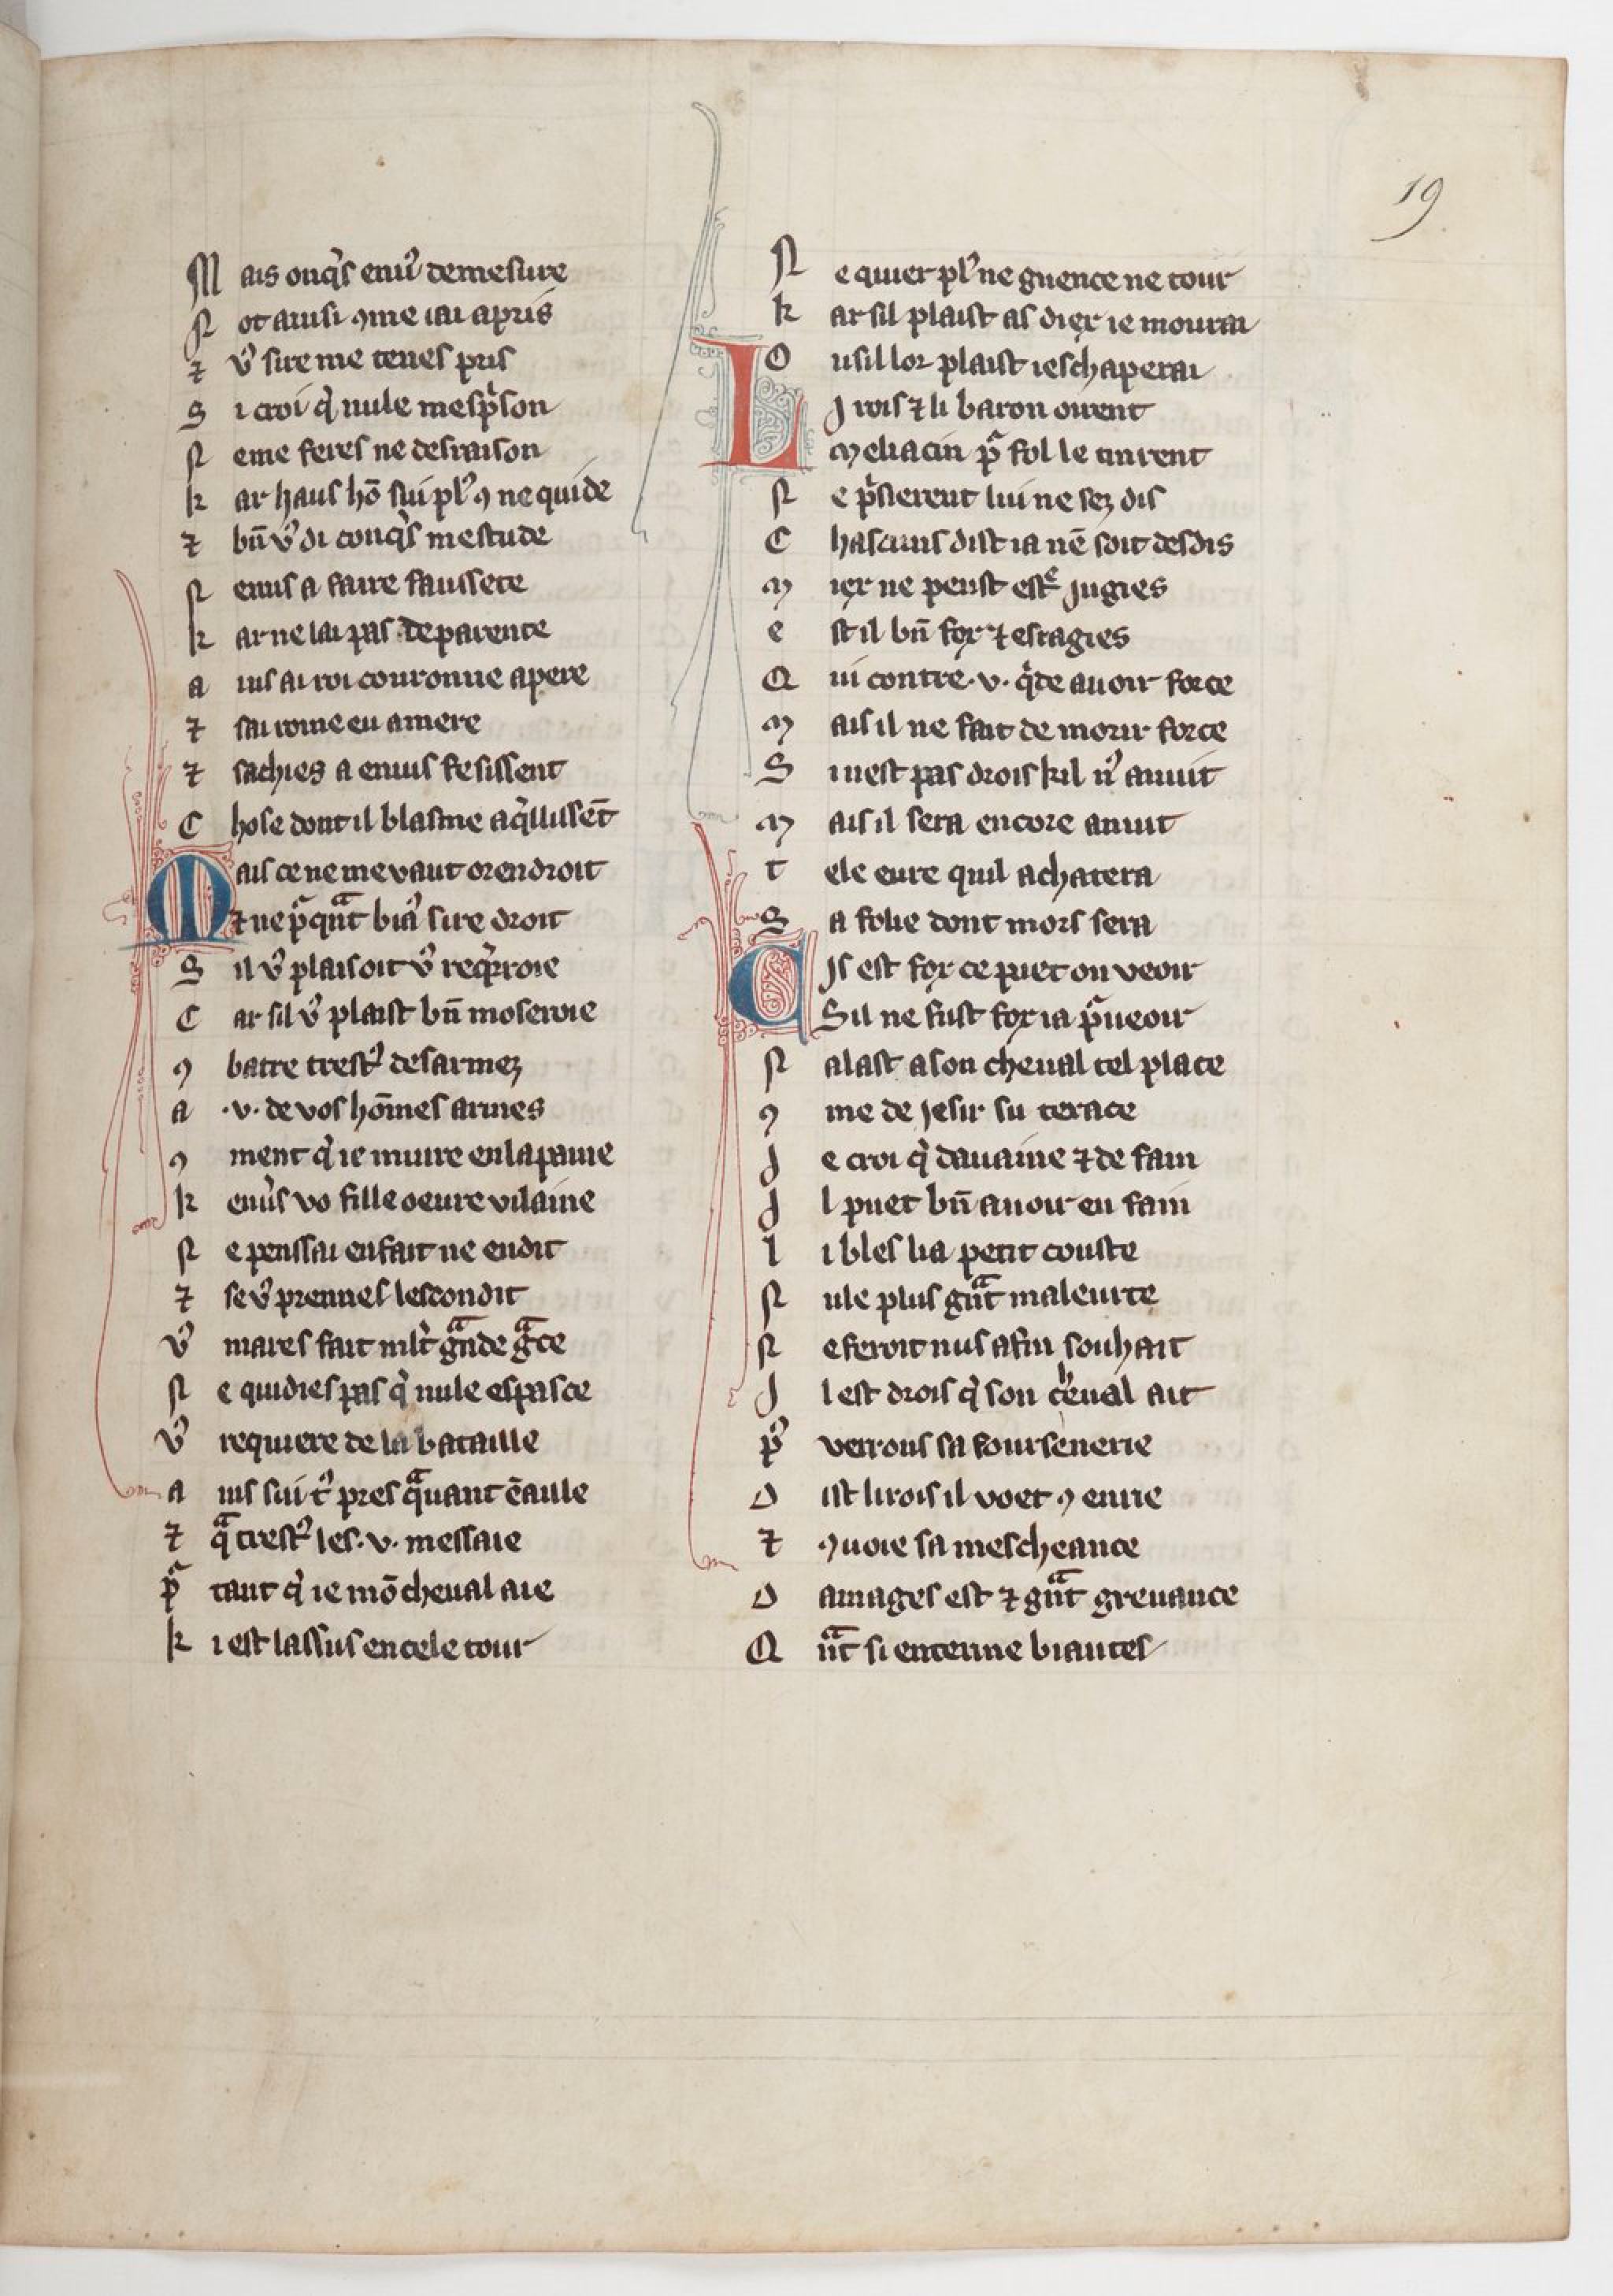 19
M ais onq̃s enũ demesure
N ot ainsi ꝯme iai apris
⁊ vꝰ sire me tenes pris
S i croi q̃ nule mesp̃son
N eme feres ne desraison
k ar haus hõ sui plꝰ ꝯ ne quide
⁊ bñ vꝰ di conq̃s mestude
N enuis a faire faussete
k ar ne lai pas de parente
a ins ai roi couronne a pere
⁊ sai roine eu a mere
⁊ sachies a enuis fesissent
C hose dont il blasme aq̃llissẽt
M ais ce ne me vaut orendroit
⁊ ne p̃quãt biaꝰ sire droit
S il vꝰ plaisoit vꝰ req̃rroie
C ar sil vꝰ plaist bñ moseroie
ꝯ batre trestꝰ desarmez
a ·v· de vos hõmes armes
ꝯ ment q̃ ie muire en la paine
k enũs vo fille oeure vilaine
N e penssai en fait ne en dit
⁊ se vꝰ prennes lescondit
vꝰ mares fait mlt̃ grãde grãce
N e quidies pas q̃ nule espasce
vꝰ requiere de la bataille
a ins sui tꝰ pres q̃uant cẽ aille
⁊ q̃ trestꝰ les ·v· messaie
p̃ tant q̃ ie mõ cheual aie
k i est lassus en cele tour
N e quier plꝰ ne guence ne tour
k ar sil plaist as diex ie mourrai
O u sil lor plaist ieschaperai
L J rois ⁊ li baron oirent
Meliacin p̃ fol le tinrent
N e p̃sierent lui ne sez dis
C hascuns dist ia nẽ soit desdis
M iex ne peust est̃e jugies
e st il bñ fox ⁊ esragies
Q ui contre ·v· q̃de auoir force
M ais il ne fait de morir force
S i nest pas drois kil nꝰ anuit
M ais il sera encore anuit
t ele eure quil achatera
S a folie dont mors sera
C Js est fox ce puet on veoir
Sil ne fust fox ia p̃ueoir
N alast a son cheual tel place
ꝯ me de jesir su terace
J e croi q̃ dauaine ⁊ de fain
J l puet bñ auoir en fain
l i bles li a petit couste
N ule plus grãt maleurte
N e feroit nus a fin souhait
J l est drois q̃ son cheual ait
pꝰ verrons sa foursenerie
D ist li rois il voet ꝯ en rie
⁊ ꝯ uoie sa mescheance
D amages est ⁊ grãt greuance
Q ñt si enterine biautes